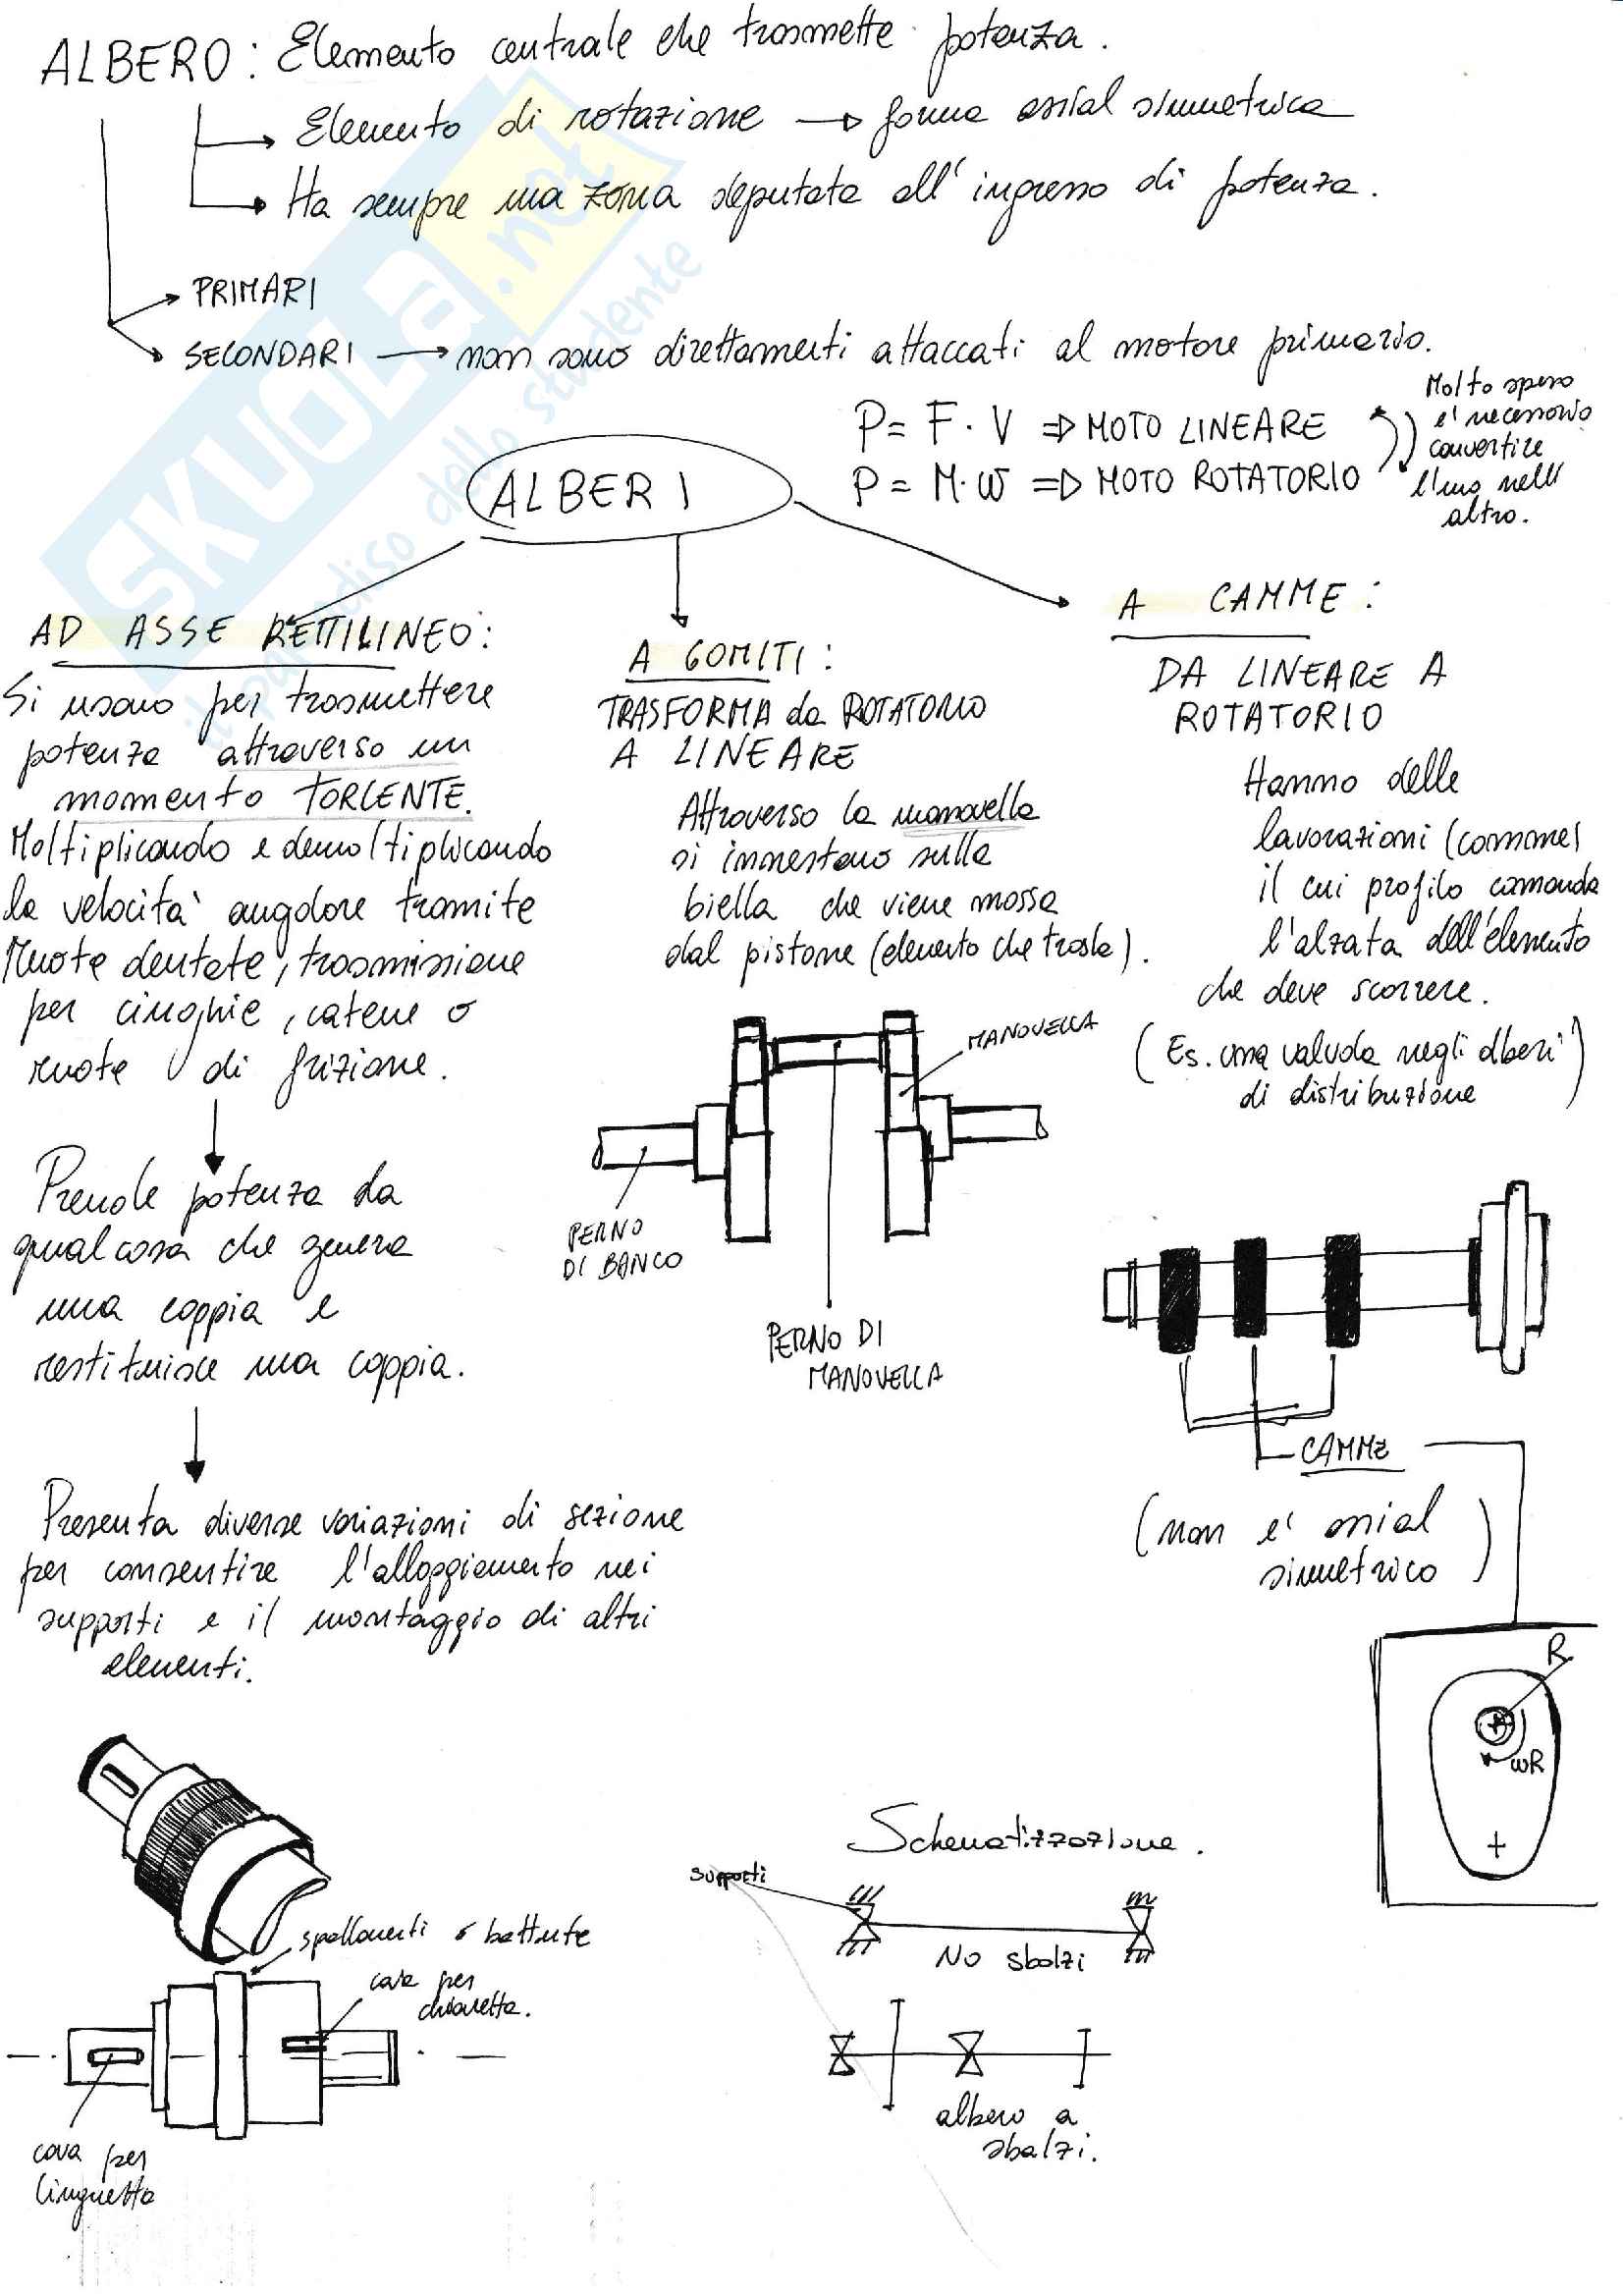 ALBERO: Elemento centrale che trasmette potenza.
Elemento di rotazione → forma assial simmetrica
Ha sempre una zona deputata all'ingresso di potenza.
PRIMARI
SECONDARI → non sono direttamenti attaccati al motore primario.
P = F · V ⇒ MOTO LINEARE
P = M · W ⇒ MOTO ROTATORIO
Molto spesso
e' necessario
convertire
l'uno nell'
altro.
ALBERI
AD ASSE RETTILINEO:
Si usano per trasmettere
potenza attraverso un
momento TORCENTE.
Moltiplicando e demoltiplicando
la velocità angolare tramite
Ruote dentate, trasmissione
per cinghie, catene o
ruote di frizione.
Prende potenza da
qualcosa che genera
una coppia e
restituisce una coppia.
Presenta diverse variazioni di sezione
per consentire l'alloggiamento nei
supporti e il montaggio di altri
elementi.
A GOMITI:
TRASFORMA da ROTATORIO
A LINEARE
Attraverso la manovella
si innestano sulla
biella che viene mossa
dal pistone (elemento che trasla).
MANOVELLA
PERNO
DI BANCO
PERNO DI
MANOVELLA
A CAMME:
DA LINEARE A
ROTATORIO
Hanno delle
lavorazioni (camme)
il cui profilo comanda
l'alzata dell'elemento
che deve scorrere.
(Es. una valvola negli alberi
di distribuzione)
CAMME
(non e' assial
simmetrico)
R
ωR
spallamenti o battute
cava per
chiavetta.
cava per
linguetta
Schematizzazione.
supporti
No sbalzi
albero a
sbalzi.
SKUOLA.net
il paradiso dello studente